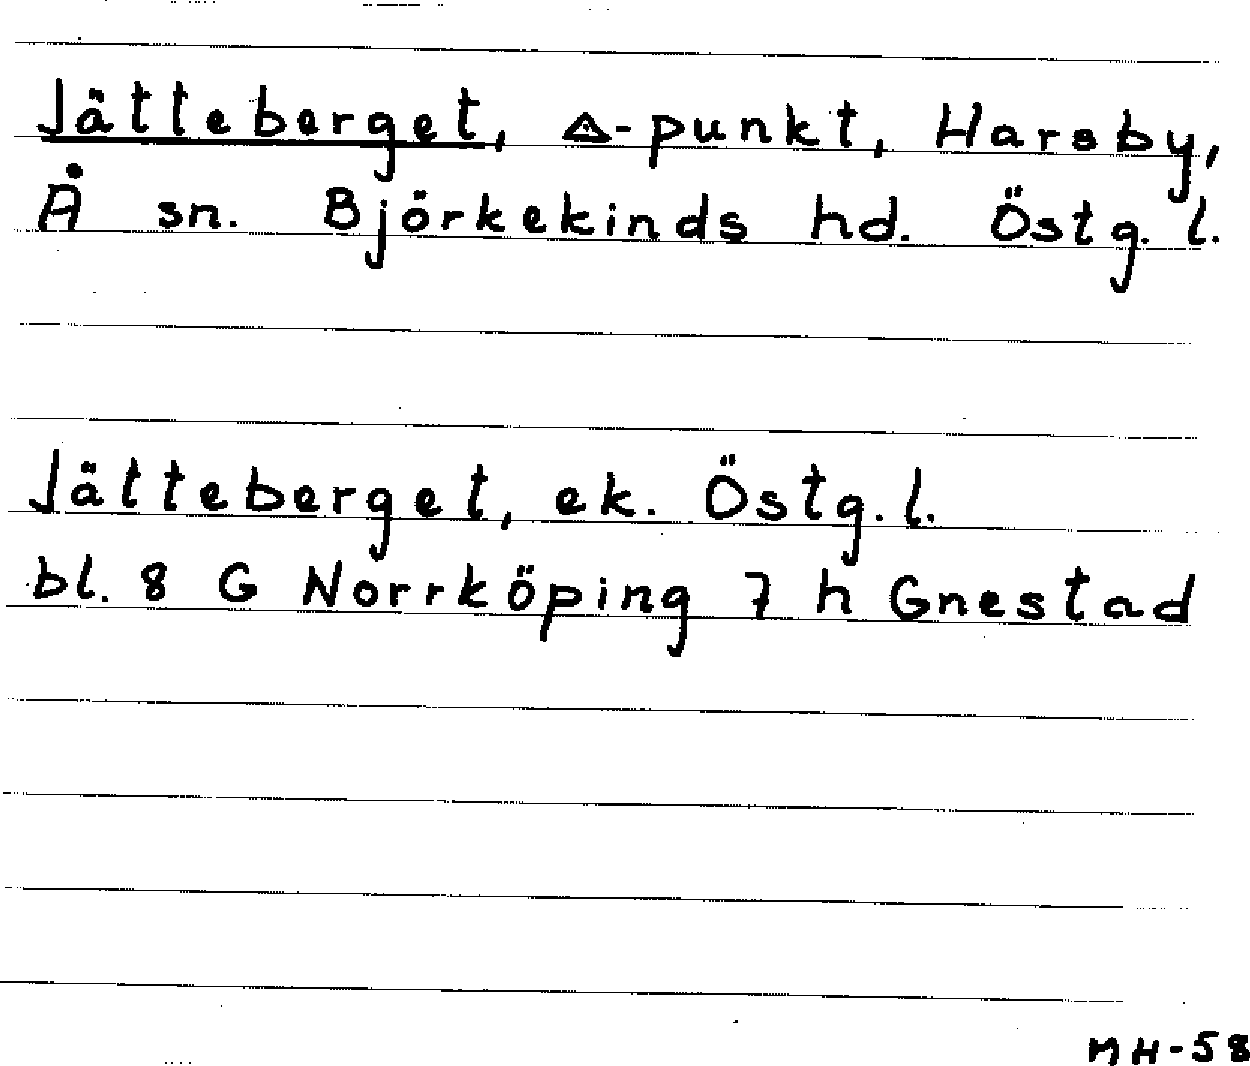 Jätteberget, △-punkt, Harsby,
Å sn. Björkekinds hd. Östg. l.
Jätteberget, ek. Östg. l.
bl. 8 G Norrköping 7 h Gnestad
MH-58